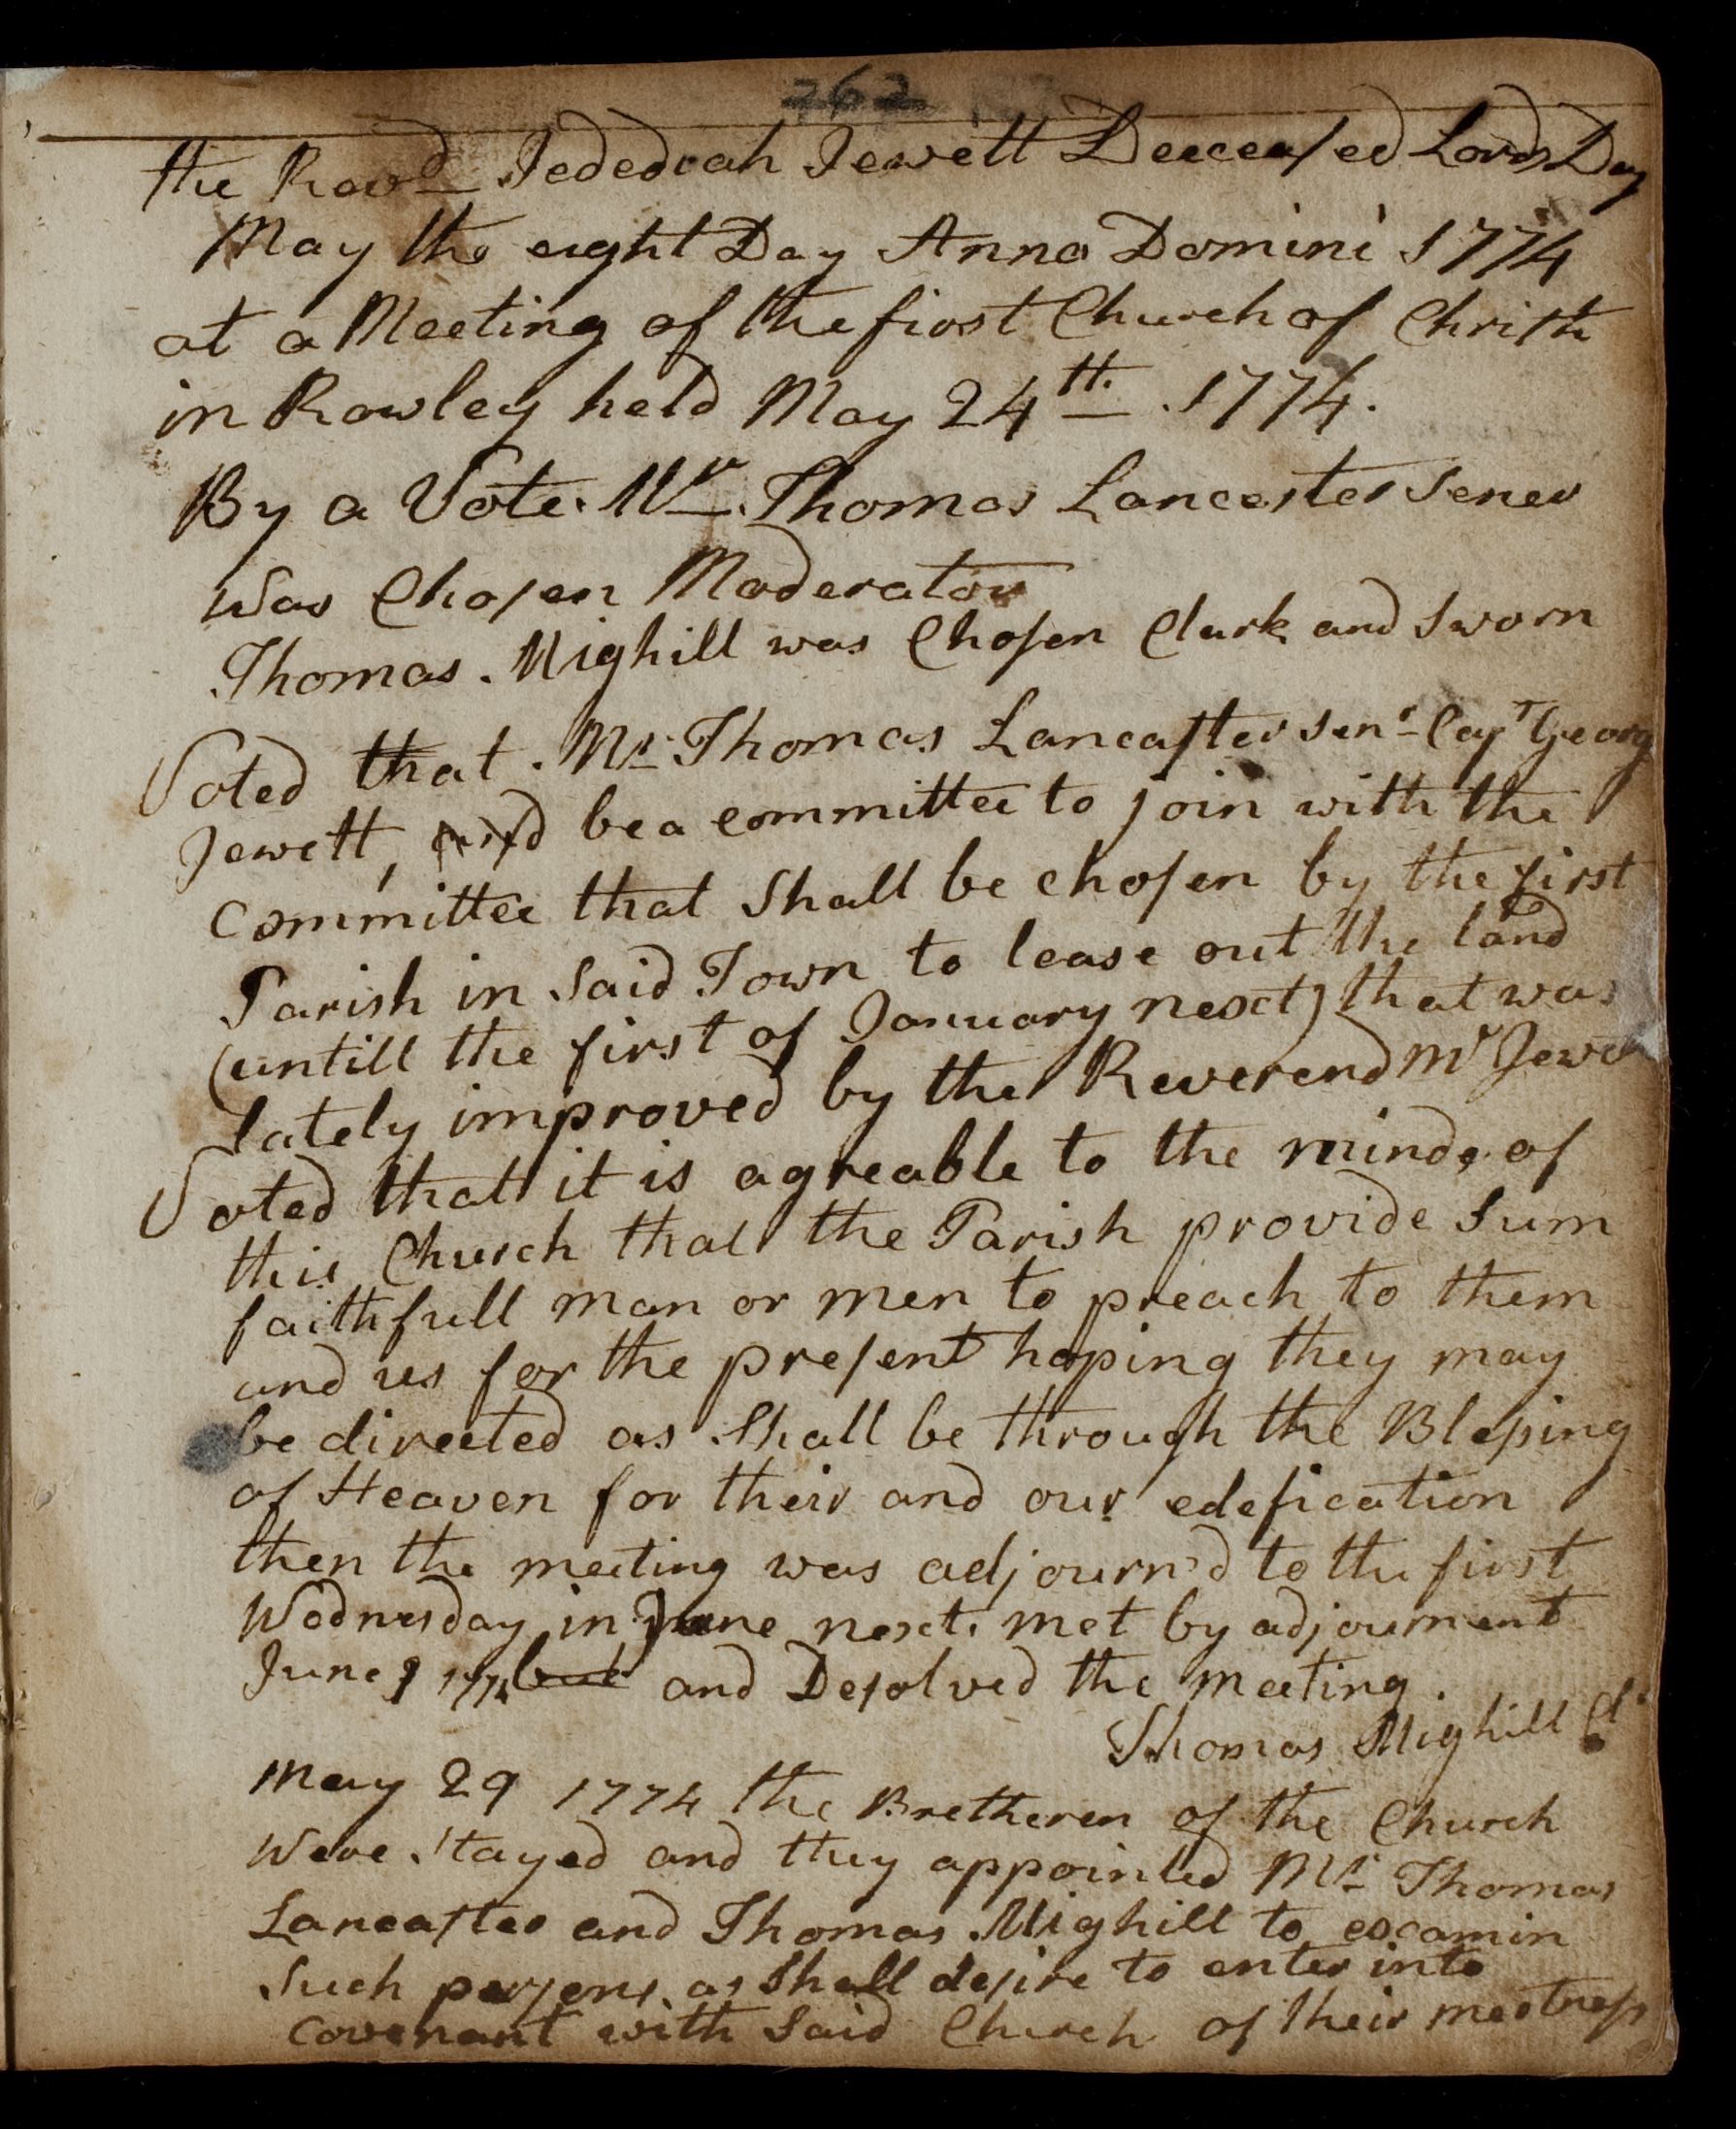 262
the Revd Jedediah Jewett Deeceased Lords Day
May the eight Day Anno Domini 1774
at a Meeting of the first Church of Christ
in Rowley held May 24th. 1774.
By a Vote. Mr. Thomas Lancester Sener
was Chosen Moderator
Thomas. Mighill was Chosen Clark and Sworn
Voted that. Mr Thomas Lancaster Senr Capt Georg
Jewett, and be a committee to join with the
Committee that Shall be chosen by the first
Parish in Said Town to lease out the land
(untill the first of January next) that was
lately improved by the Reverend Mr Jewet
Voted that it is agreable to the minds of
this Church that the Parish provide Sum
faithfull man or men to preach to them
and us for the present hoping they may
be directed as Shall be through the Blessing
of Heaven for their and our edefication
then the meeting was adjourn'd to the first
Wednesday in June next. met by adjournment
June 1774 and Desolved the meeting.
Thomas Mighill Cl
May 29 1774 the Bretheren of the Church
Were Stayed and they appointed Mr Thomas
Lancaster and Thomas Mighill to examin
Such persons as Shall desire to enter into
Covenant with Said Church of their meetness